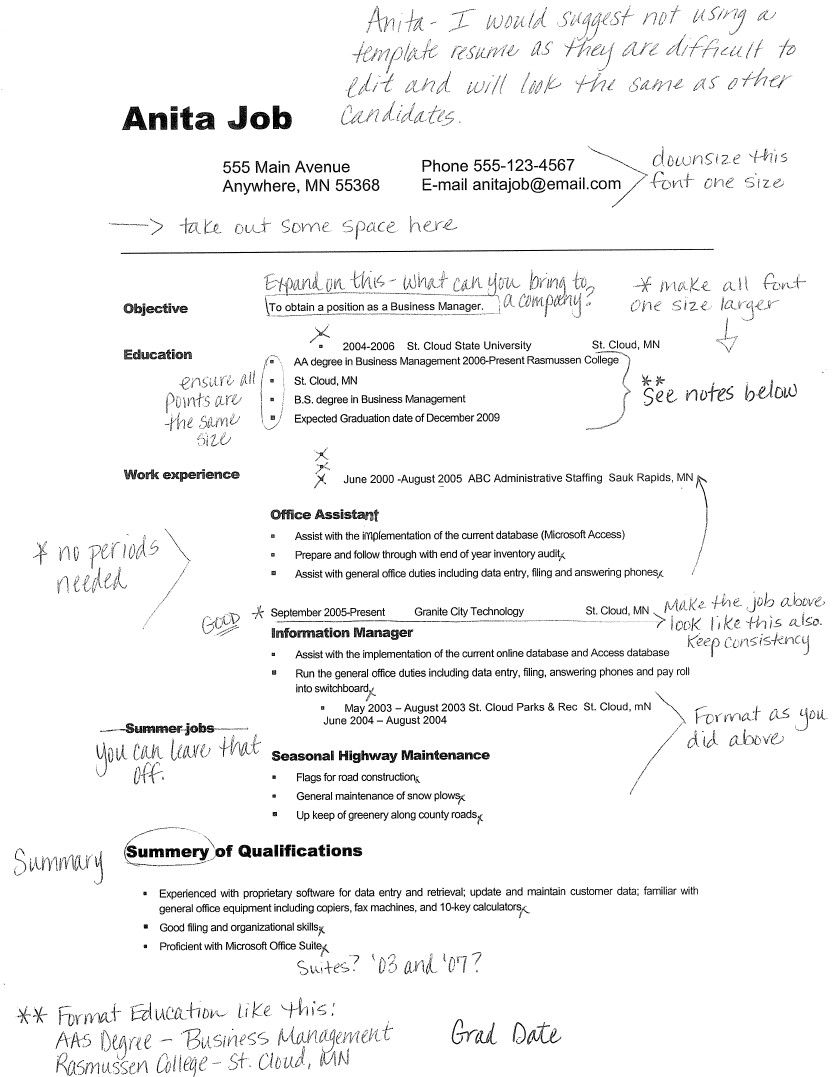 Anita - I would suggest not using a
template resume as they are difficult to
edit and will look the same as other
candidates.
Anita Job
555 Main Avenue Phone 555-123-4567
Anywhere, MN 55368 E-mail anitajob@email.com
downsize this
font one size
take out some space here
Expand on this - what can you bring to
a company?
* make all font
one size larger
Objective
To obtain a position as a Business Manager.
2004-2006 St. Cloud State University St. Cloud, MN
Education
AA degree in Business Management 2006-Present Rasmussen College
St. Cloud, MN
B.S. degree in Business Management
Expected Graduation date of December 2009
ensure all
points are
the same
size
**
See notes below
Work experience
June 2000 -August 2005 ABC Administrative Staffing Sauk Rapids, MN
Office Assistant
Assist with the implementation of the current database (Microsoft Access)
Prepare and follow through with end of year inventory audit.
Assist with general office duties including data entry, filing and answering phones.
* no periods
needed
GOOD *
September 2005-Present Granite City Technology St. Cloud, MN
Make the job above
look like this also.
Keep consistency
Information Manager
Assist with the implementation of the current online database and Access database
Run the general office duties including data entry, filing, answering phones and pay roll
into switchboard.
May 2003 – August 2003 St. Cloud Parks & Rec St. Cloud, mN
June 2004 – August 2004
Format as you
did above
Summer jobs
You can leave that
off.
Seasonal Highway Maintenance
Flags for road construction.
General maintenance of snow plows.
Up keep of greenery along county roads.
Summary
Summery of Qualifications
Experienced with proprietary software for data entry and retrieval; update and maintain customer data; familiar with
general office equipment including copiers, fax machines, and 10-key calculators.
Good filing and organizational skills.
Proficient with Microsoft Office Suite.
Suites? '03 and '07?
** Format Education like this:
AAS Degree - Business Management Grad Date
Rasmussen College - St. Cloud, MN